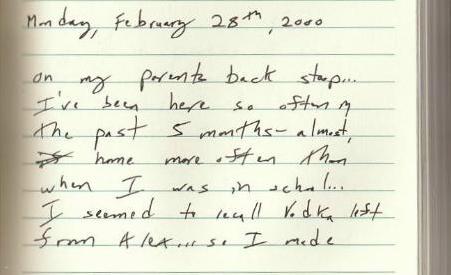 Monday, February 28th, 2000
on my parents back stoop...
I've been here so often in
the past 5 months - almost
home more often than
when I was in school...
I seemed to recall Vodka left
from Alex... so I made